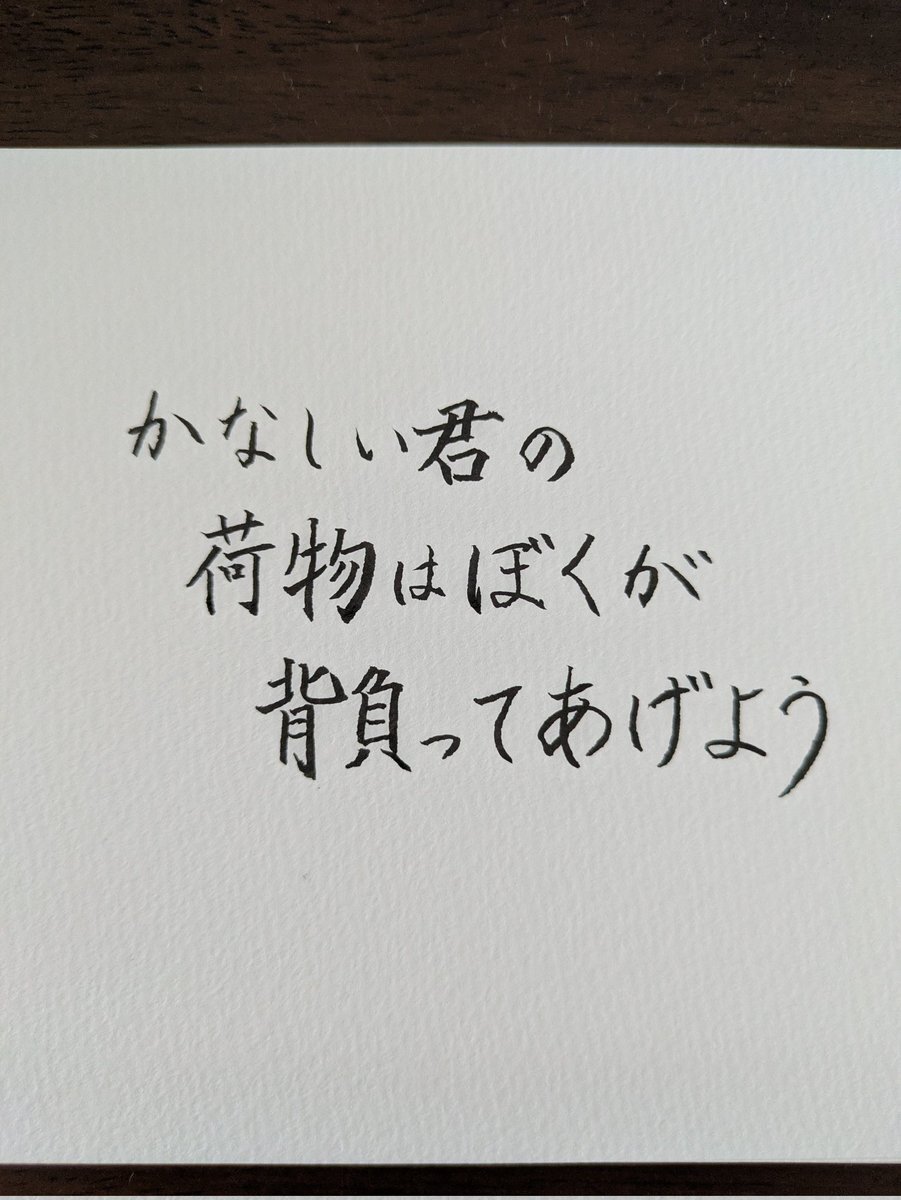 かなしい君の
荷物はぼくが
背負ってあげよう